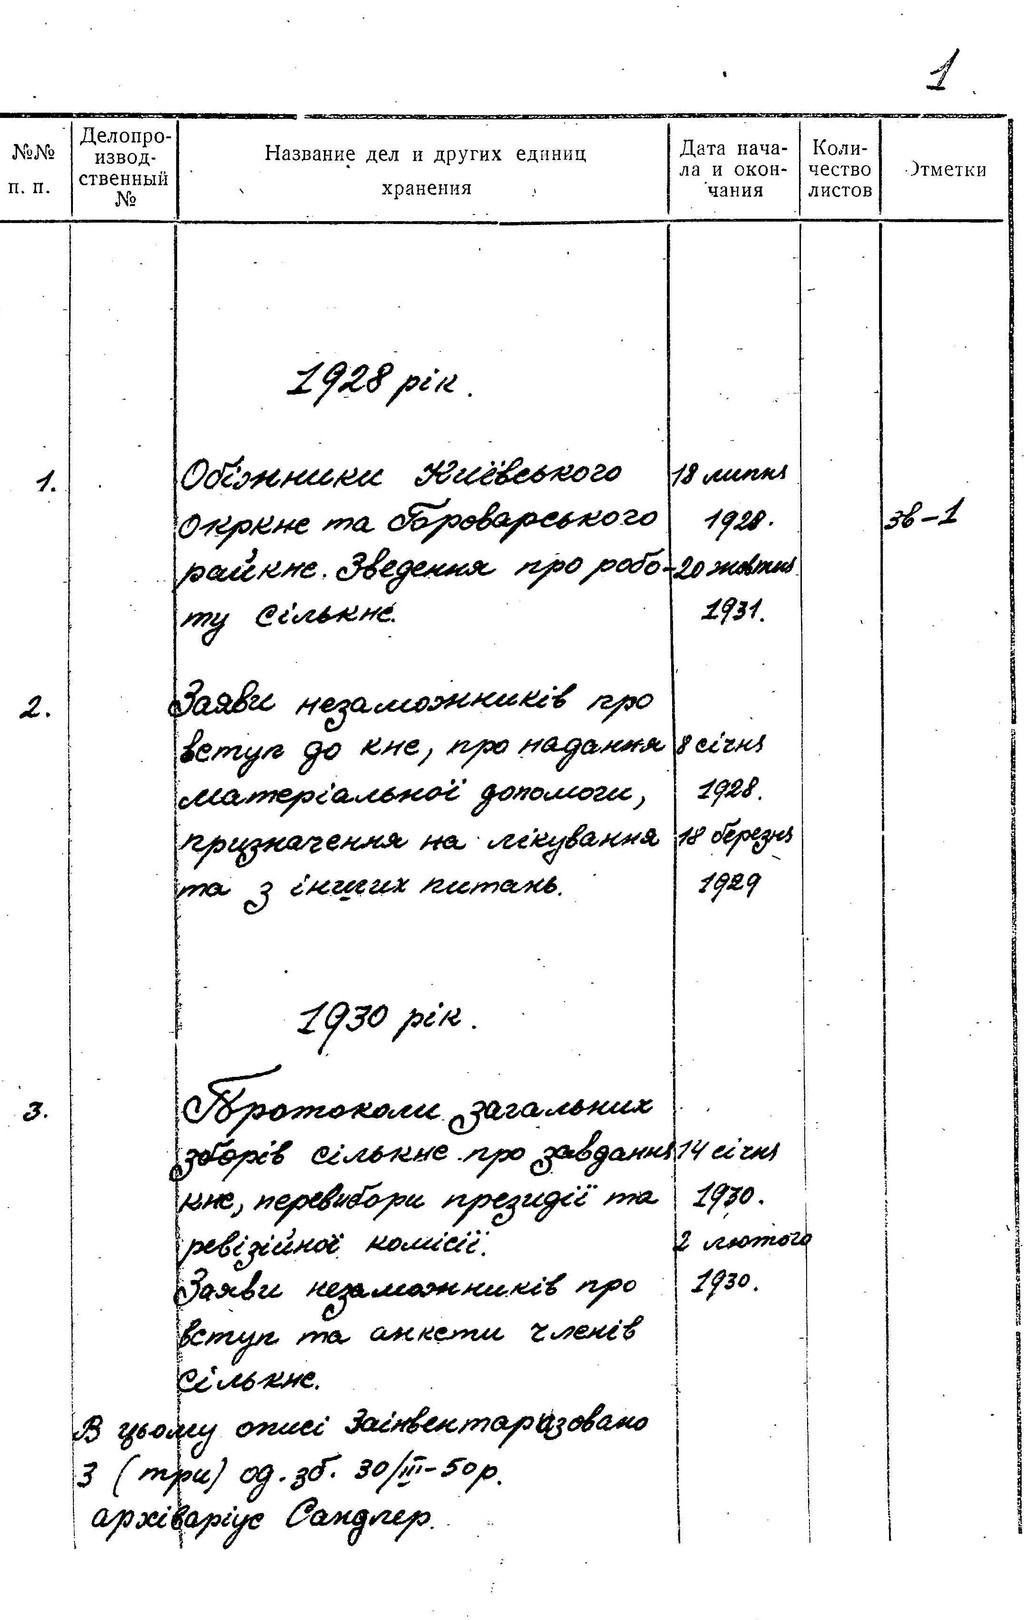 1
№№ п. п.
Делопро-
извод-
ственный
№
Название дел и других единиц
хранения
Дата нача-
ла и окон-
чания
Коли-
чество
листов
Отметки
1928 рік.
1. Обіжники Киёвського 18 липня
Окркне та Броварського 1928. зв-1
райкне. Зведення про робо- 20 жовтня
ту сількне. 1931.
2. Заяви незаможників про
вступ до кне, про надання 8 січня
матеріальної допомоги, 1928.
призначення на лікування 18 березня
та з інших питань. 1929
1930 рік.
3. Протоколи загальних
зборів сількне про завдання 14 січня
кне, перевибори президії та 1930.
ревізійної комісії. 2 лютого
Заяви незаможників про 1930.
вступ та анкети членів
сількне.
В цьому описі Заінвентаризовано
3 (три) од. зб. 30/III-50р.
архіваріус Сандлер.